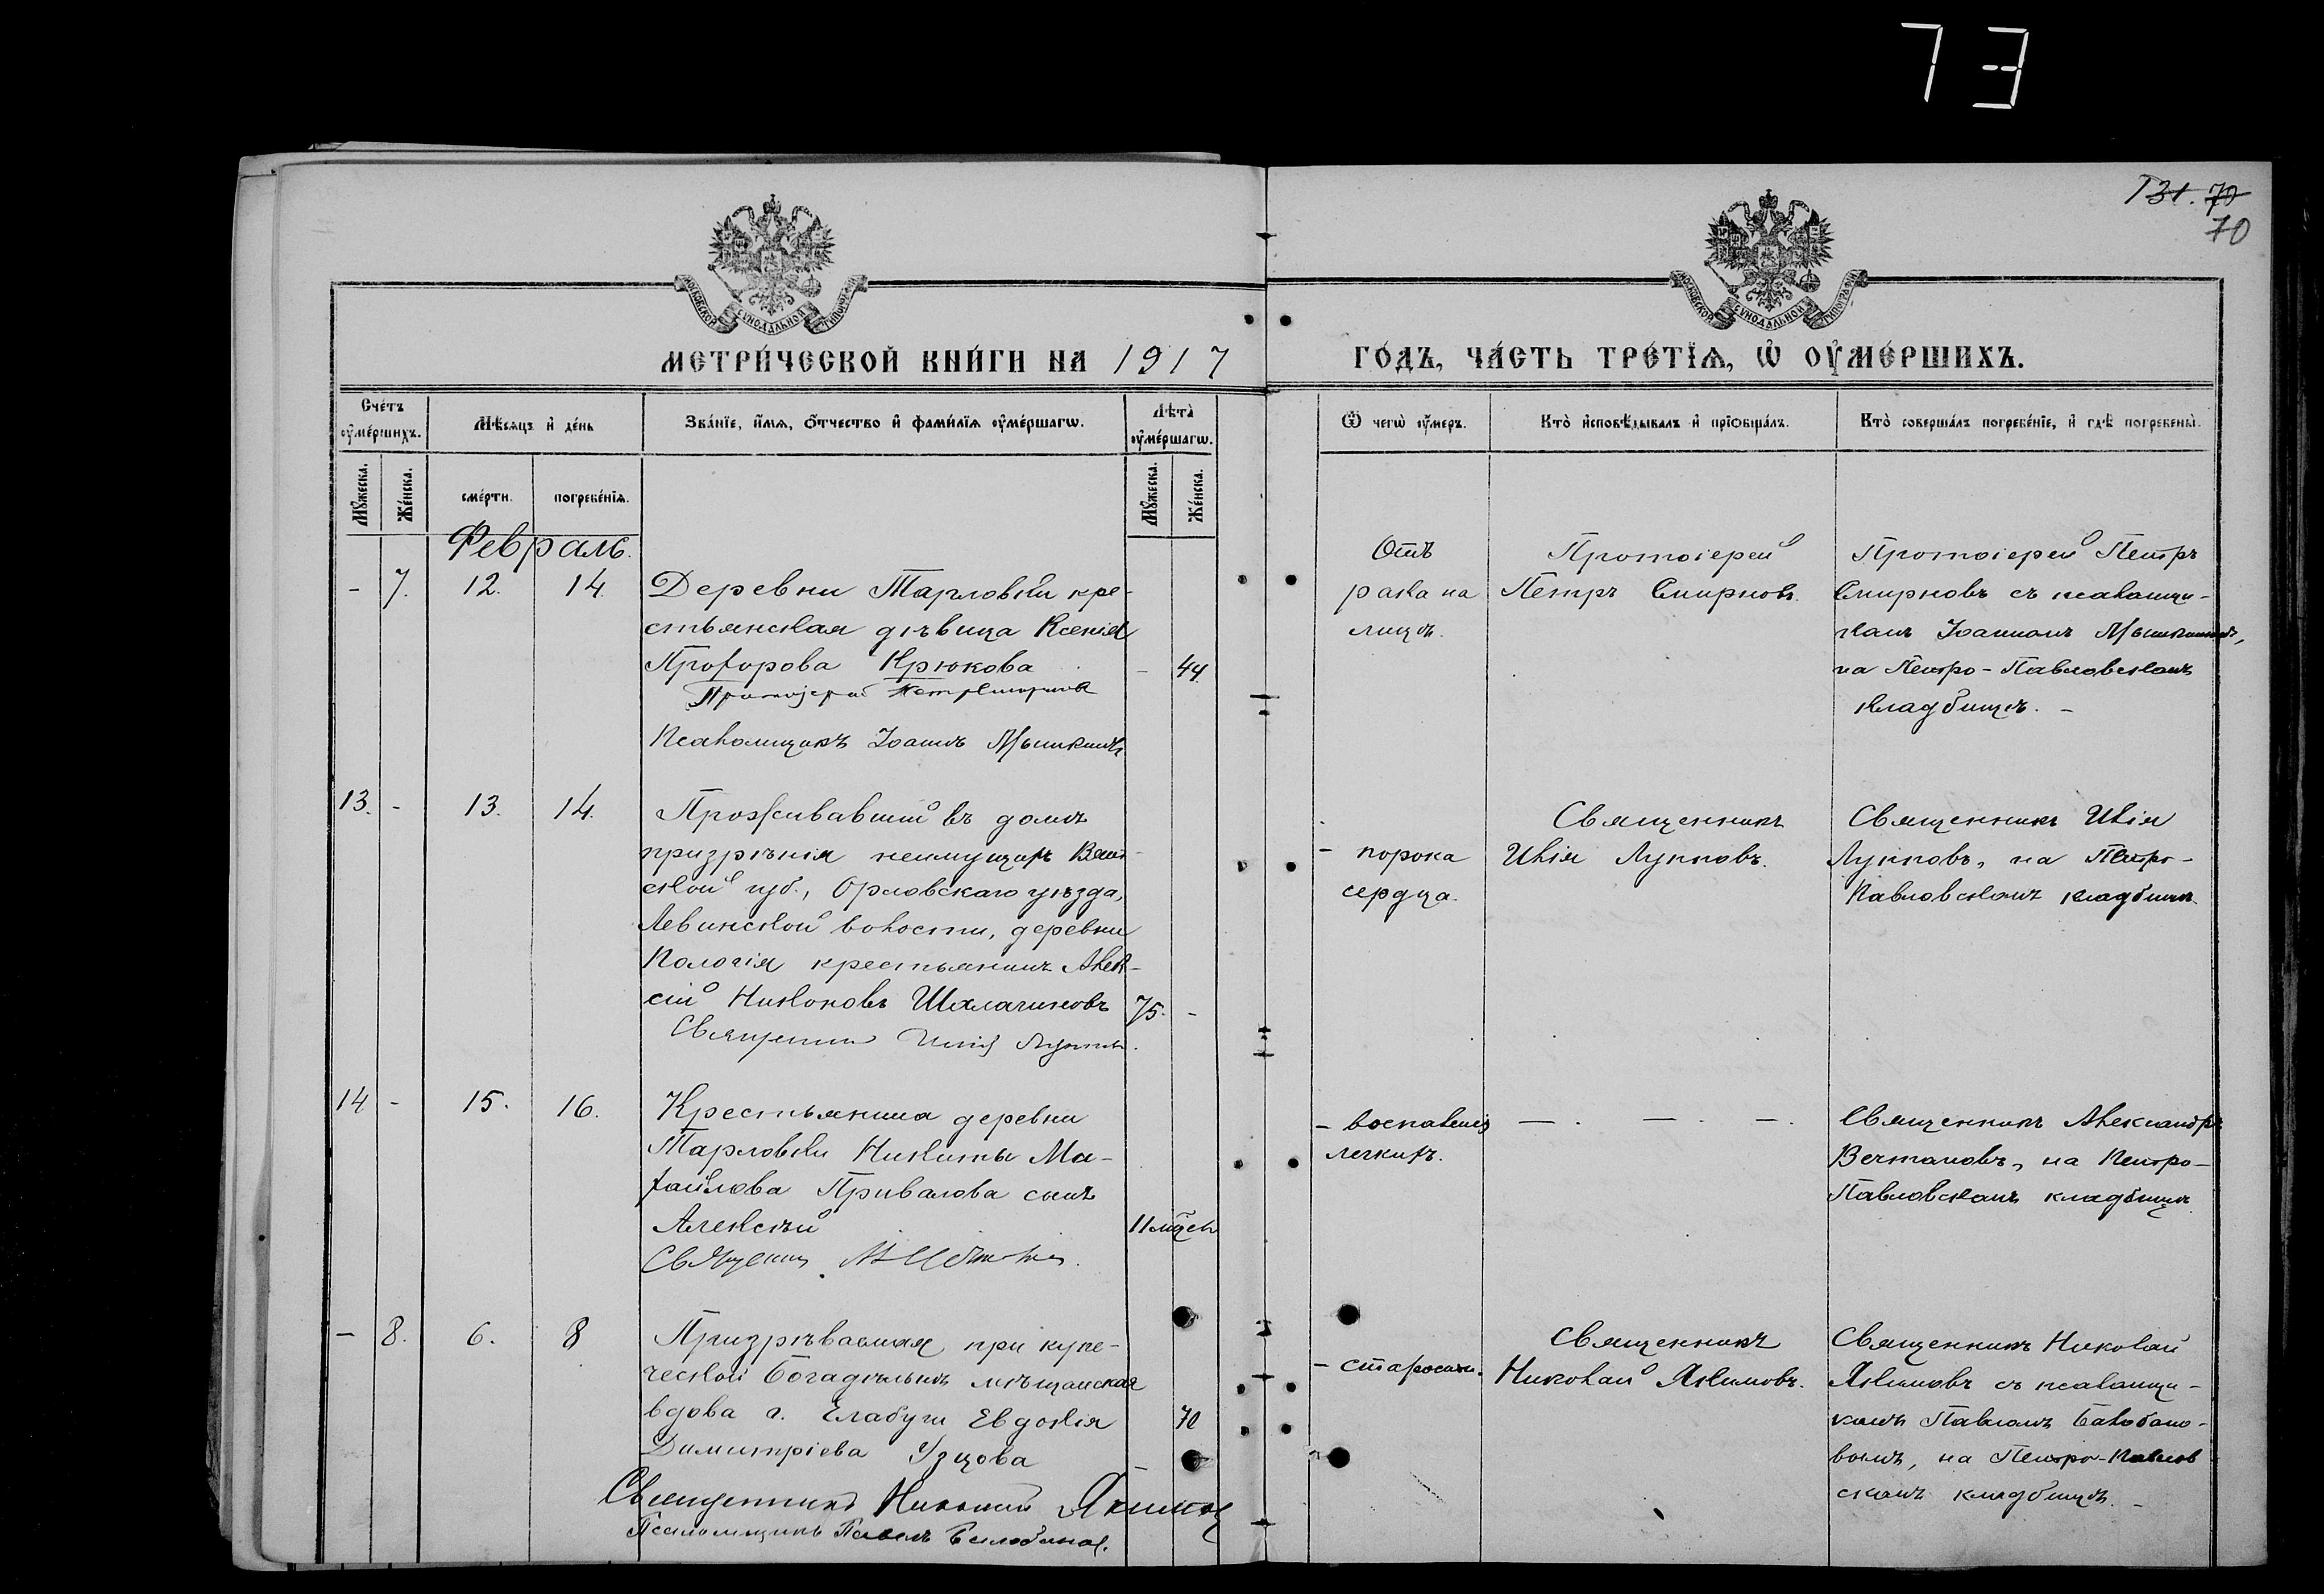 73
131. 70
70
МОСКОВСКОЙ СѴНОДАЛЬНОЙ ТИПОГРАФІИ
МОСКОВСКОЙ СѴНОДАЛЬНОЙ ТИПОГРАФІИ
МЕТРИ́ЧЕСКОЙ КНИ́ГИ НА 1917
ГО́ДЪ, ЧА́СТЬ ТРЕ́ТІѦ, Ѡ҆ ОУ҆МЕ́РШИХЪ.
Сче́тъ оу҆ме́ршихъ.
Мѣсѧцъ и҆ де́нь
Зва́нїе, и҆́мѧ, ѻ҆́тчество и҆ фами́лїѧ оу҆ме́ршагѡ.
Лѣта̀ оу҆ме́ршагѡ.
Ѿ чегѡ̀ оу҆́меръ.
Кто̀ и҆сповѣ́дывалъ и҆ прїѻбща́лъ.
Кто̀ соверша́лъ погребе́нїе, и҆ гдѣ̀ погребены̀.
Мꙋ́жеска.
Же́нска.
сме́рти.
погребе́нїѧ.
Мꙋ́жеска.
Же́нска.
Февраль.
- 7. 12. 14.
Деревни Тарловки кре-
стьянская дѣвица Ксенія
Прохорова Крюкова - 44.
Протоіерей Петръ Смирновъ
Псаломщикъ Іоаннъ Мышкинъ
Отъ
рака на
лицѣ.
Протоіерей
Петръ Смирновъ.
Протоіерей Петръ
Смирновъ съ псаломщи-
комъ Іоанномъ Мышкинымъ,
на Петро-Павловскомъ
кладбищѣ. -
13. - 13. 14.
Проживавшій въ домѣ
призрѣнія неимущихъ Вят-
ской губ., Орловскаго уѣзда,
Левинской волости, деревни
Пологія крестьянинъ Алек-
сій Никоновъ Шалагиновъ 75. -
Священникъ Илія Лупповъ.
- порока
сердца.
Священникъ
Илія Лупповъ.
Священникъ Илія
Лупповъ, на Петро-
Павловскомъ кладбищѣ.
14 - 15. 16.
Крестьянина деревни
Тарловки Никиты Ми-
хайлова Привалова сынъ
Алексѣй 11 мѣсц.
Священникъ
- воспаленія
легкихъ.
- . - . - .
Священникъ Александръ
на Петро-
Павловскомъ кладбищѣ.
- 8. 6. 8
Призрѣваемая при купе-
ческой богадѣльнѣ мѣщанская
вдова г. Елабуги Евдокія 70
Димитріева Узцова -
Священникъ Николай Якимовъ
Псаломщикъ Павелъ Балобановъ.
- старости.
Священникъ
Николай Якимовъ.
Священникъ Николай
Якимовъ съ псаломщи-
комъ Павломъ Балобано-
вымъ, на Петро-Павлов
скомъ кладбищѣ. -